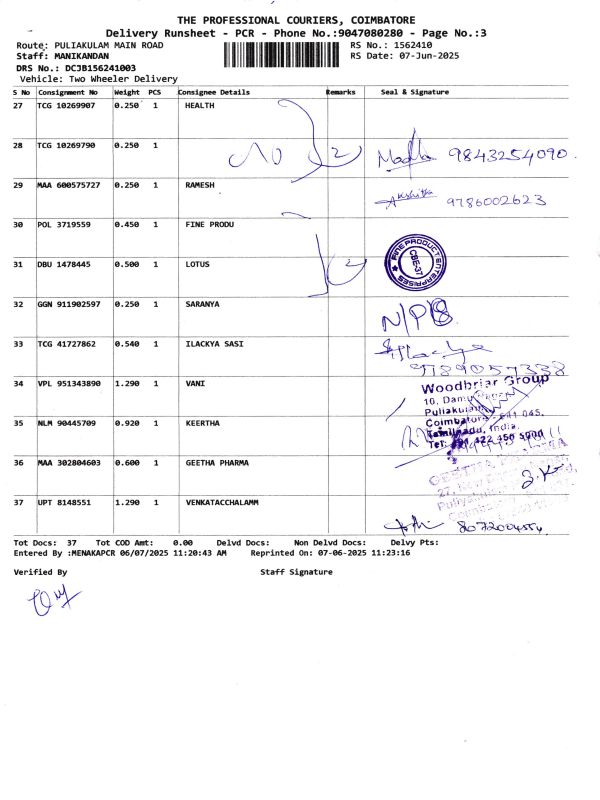 THE PROFESSIONAL COURIERS, COIMBATORE
Delivery Runsheet - PCR - Phone No.:9047080280 - Page No.:3
Route: PULIAKULAM MAIN ROAD RS No.: 1562410
Staff: MANIKANDAN RS Date: 07-Jun-2025
DRS No.: DCJB156241003
Vehicle: Two Wheeler Delivery
S No Consignment No Weight PCS Consignee Details Remarks Seal & Signature
27 TCG 10269907 0.250 1 HEALTH
28 TCG 10269790 0.250 1 2 9843254090.
29 MAA 600575727 0.250 1 RAMESH Akshitha 9786002623
30 POL 3719559 0.450 1 FINE PRODU
FINE PRODUCT ENTERPRISES
CBE-37
31 DBU 1478445 0.500 1 LOTUS 2
32 GGN 911902597 0.250 1 SARANYA
33 TCG 41727862 0.540 1 ILACKYA SASI
9789057338
34 VPL 951343890 1.290 1 VANI
Woodbriar Group
Puliakulam
Coimbatore - 641 045,
Tamilnadu, India.
35 NLM 90445709 0.920 1 KEERTHA
36 MAA 302804603 0.600 1 GEETHA PHARMA
37 UPT 8148551 1.290 1 VENKATACCHALAMM
Tot Docs: 37 Tot COD Amt: 0.00 Delvd Docs: Non Delvd Docs: Delvy Pts:
Entered By :MENAKAPCR 06/07/2025 11:20:43 AM Reprinted On: 07-06-2025 11:23:16
Verified By Staff Signature